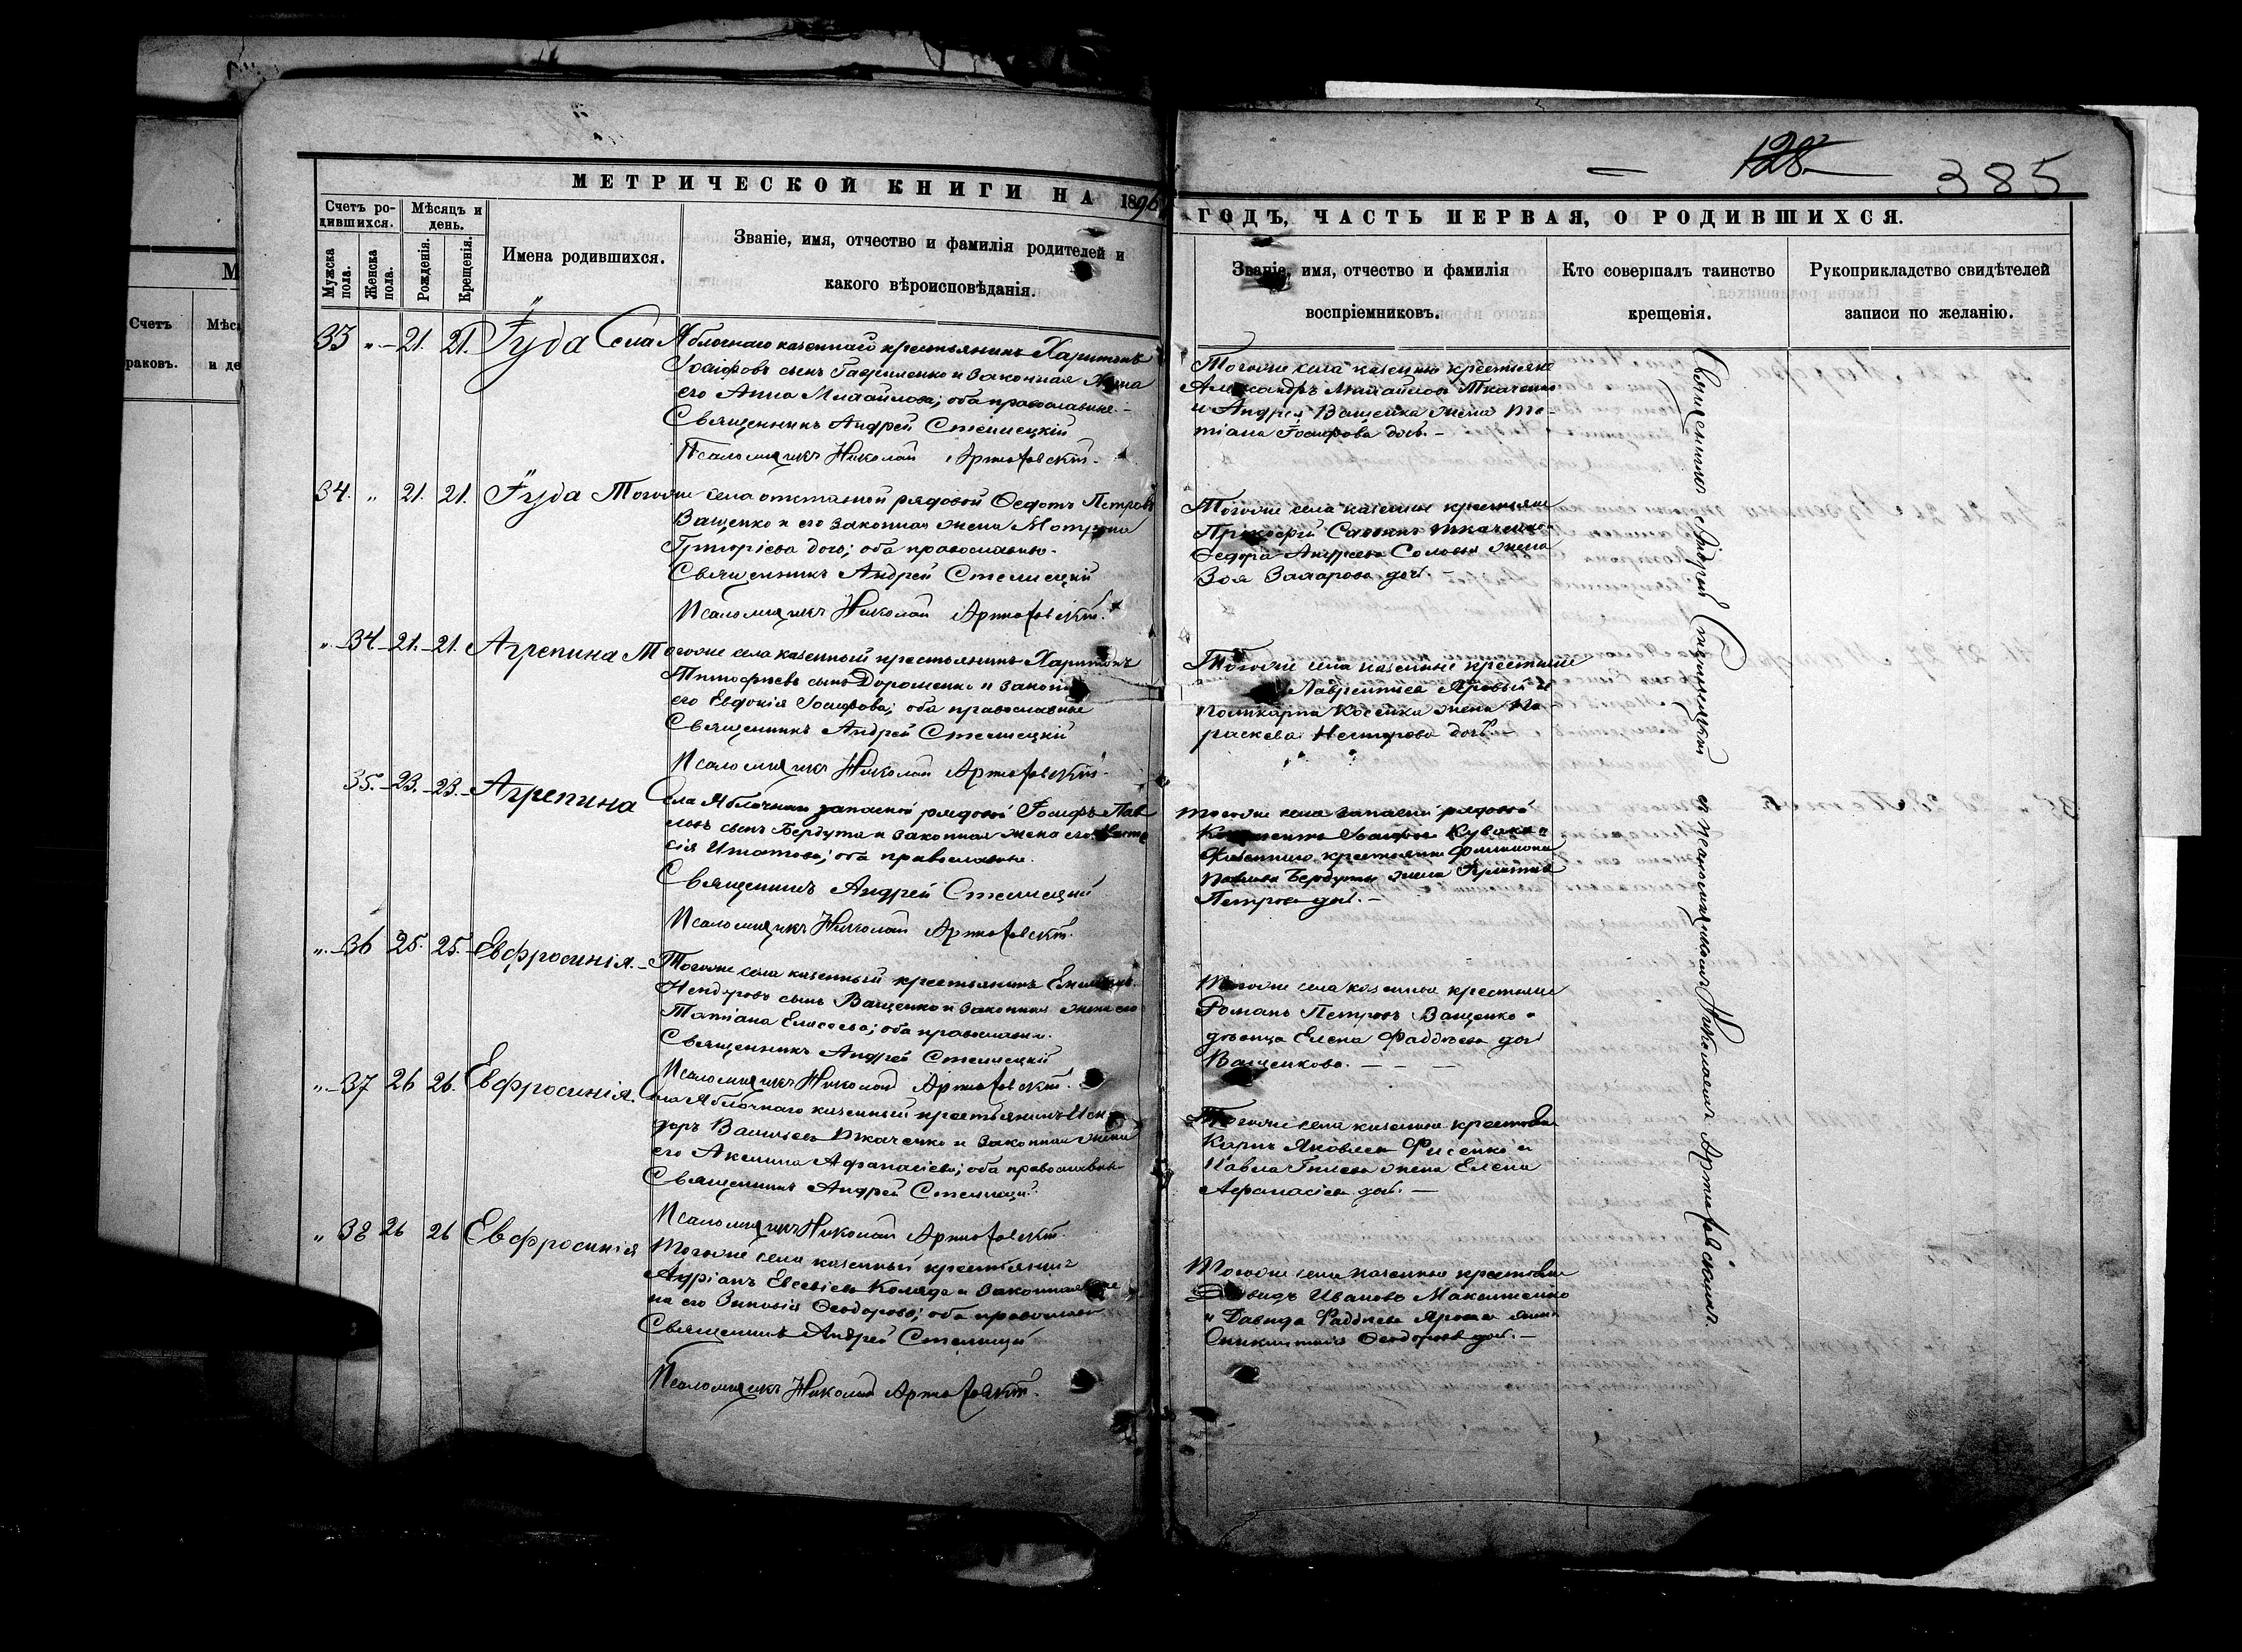 128
385
МЕТРИЧЕСКОЙ КНИГИ НА 1896
ГОДЪ, ЧАСТЬ ПЕРВАЯ, О РОДИВШИХСЯ.
Счетъ ро-
дившихся.
Мѣсяцъ и
день.
Мужска
пола.
Женска
пола.
Рожденія.
Крещенія.
Имена родившихся.
Званіе, имя, отчество и фамилія родителей и
какого вѣроисповѣданія.
Званіе, имя, отчество и фамилія
воспріемниковъ.
Кто совершалъ таинство
крещенія.
Рукоприкладство свидѣтелей
записи по желанію.
М
Счетъ
Мѣс
раковъ.
и де
33 „ 21. 21. Іуда Села Яблочнаго казеннаго крестьянинъ Харитонъ
Іосифовъ сынъ Гавриленко и законная жена
его Анна Михайлова; оба православные.
Священникъ Андрей Стеллецкій
Псаломщикъ Николай Артюховскій.
Тогоже села казенные крестьяне
Александръ Михайловъ Ткаченко
и Андрея Ващенка жена Та-
тіана Іосифова дочь.
34. „ 21. 21. Іуда Тогоже села отставной рядовой Федотъ Петровъ
Ващенко и его законная жена Матрона
Григоріева дочь; оба православные.
Священникъ Андрей Стеллецкій
Псаломщикъ Николай Артюховскій.
Тогоже села казенные крестьяне
Прокофій Саввинъ Ткаченко
Федора Андреева Соловья жена
Зоя Захарова дочь.
„ 34. 21. 21. Агрепина Тогоже села казенный крестьянинъ Харитонъ
Тимофѣевъ сынъ Дорошенко и законн
его Евдокія Іосифова; оба православные
Священникъ Андрей Стеллецкій
Псаломщикъ Николай Артюховскій.
Тогоже села казенные крестьяне
Лаврентіевъ Яровый и
Поликарпа Косенка жена Па
раскева Несторова дочь.
35. 23. 23. Агрепина Села Яблочнаго запасной рядовой Іосифъ Пав
ловъ сынъ Бердута и законная жена его Наста
сія Игнатова; оба православные.
Священникъ Андрей Стеллецкій
Псаломщикъ Николай Артюховскій.
Тогоже села запасной рядовой
Іосифовъ
казеннаго крестьянина Филимона
Павлова Бердуты жена
Петрова дочь.
„ 36 25. 25. Евфросинія. Тогоже села казенный крестьянинъ
сынъ Ващенко и законная жена его
Татіана Елисеева; оба православные.
Священникъ Андрей Стеллецкій
Псаломщикъ Николай Артюховскій.
Тогоже села казенные крестьяне
Романъ Петровъ Ващенко и
дѣвица Елена Фаддѣева дочь
Ващенкова.
„ 37 26 26. Евфросинія. Села Яблочнаго казенный крестьянинъ Иси-
доръ Васильевъ Ткаченко и законная жена
его Акилина Афанасіева; оба православные
Священникъ Андрей Стеллецкій.
Псаломщикъ Николай Артюховскій.
Тогоже села казенные крестьяне
Карпъ Яковлевъ Фисенко и
Павла жена Елена
Афанасіева дочь.
„ 38 26 26 Евфросинія Тогоже села казенный крестьянинъ
Андріанъ Евсевіевъ Коляда и законная же
на его Зиновія Феодорова; оба православ
Священникъ Андрей Стеллецкій
Псаломщикъ Николай Артюховскій.
Тогоже села казенные крестьяне
Давидъ Ивановъ Максименко
и Давида Фаддѣева жена
Феодорова дочь.
Священникъ Андрей Стеллецкій съ псаломщикомъ Николаемъ Артюховскимъ.